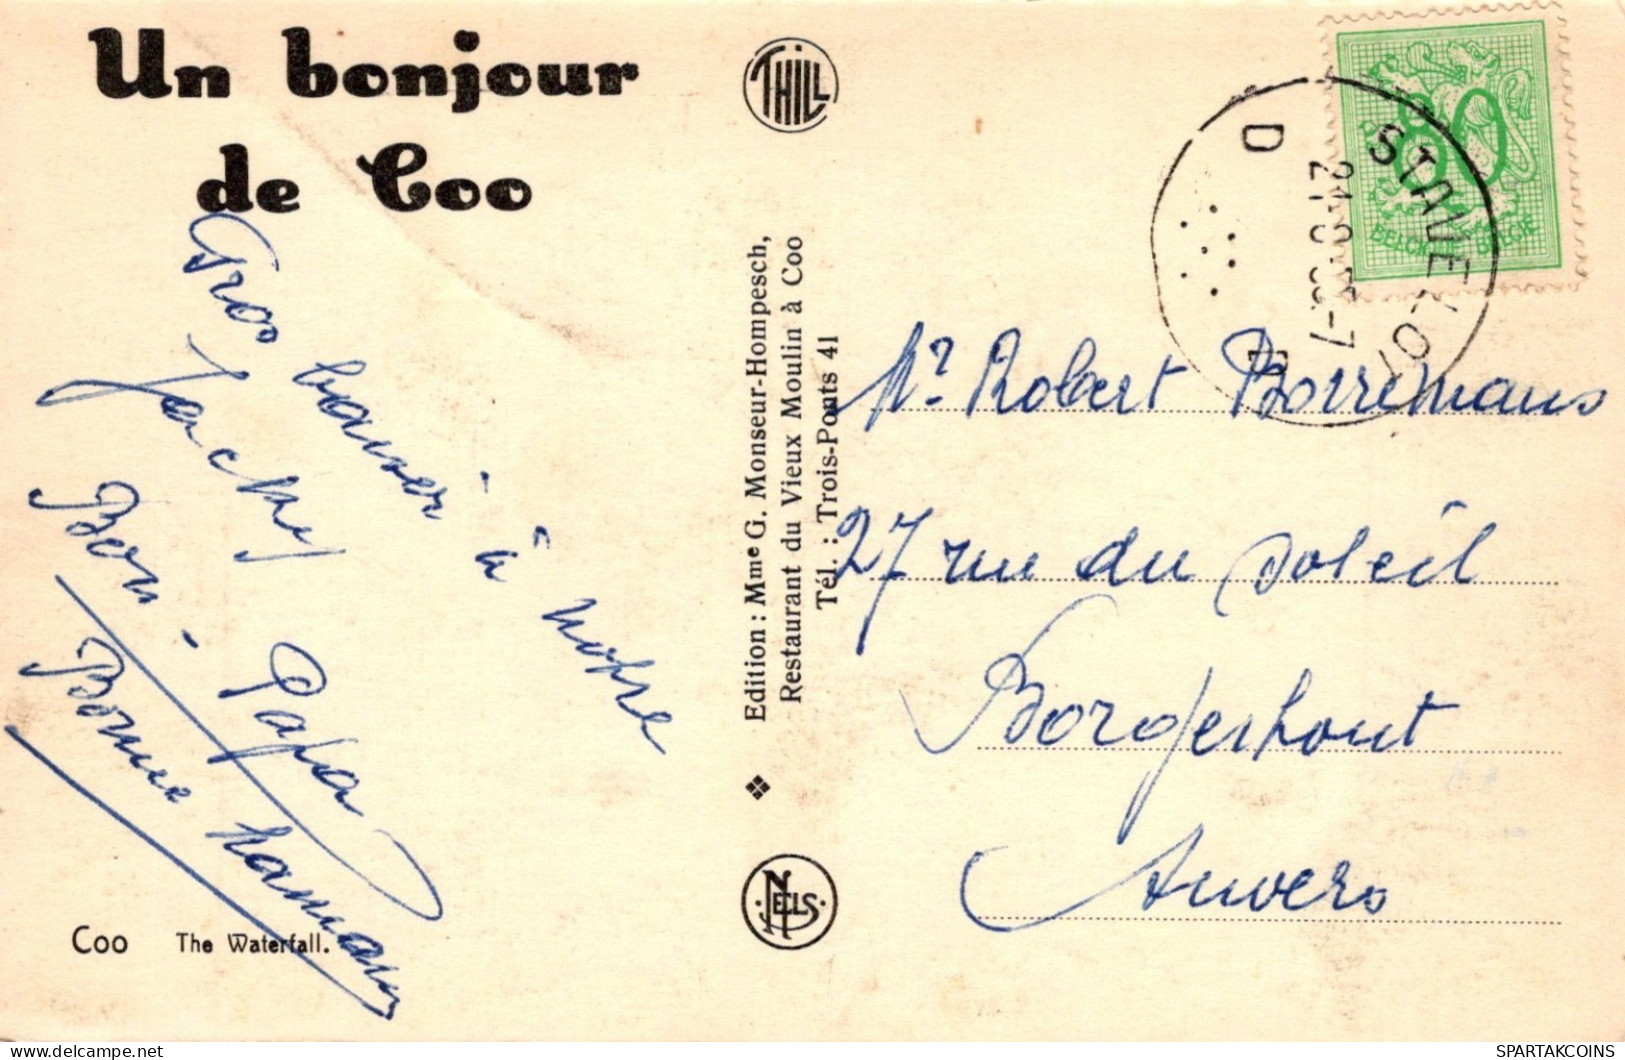 Un bonjour
de Coo
Gros baiser à notre
Jacky
Bon-Papa
Bonne Maman
Coo The Waterfall.
THILL
Edition : Mme G. Monseur-Hompesch,
Restaurant du Vieux Moulin à Coo
Tél. : Trois-Ponts 41
NELS
80
BELGIE
STAVELOT
D
Mr Robert Borremans
27 rue du Soleil
Borgerhout
Anvers
SPARTAKCOINS